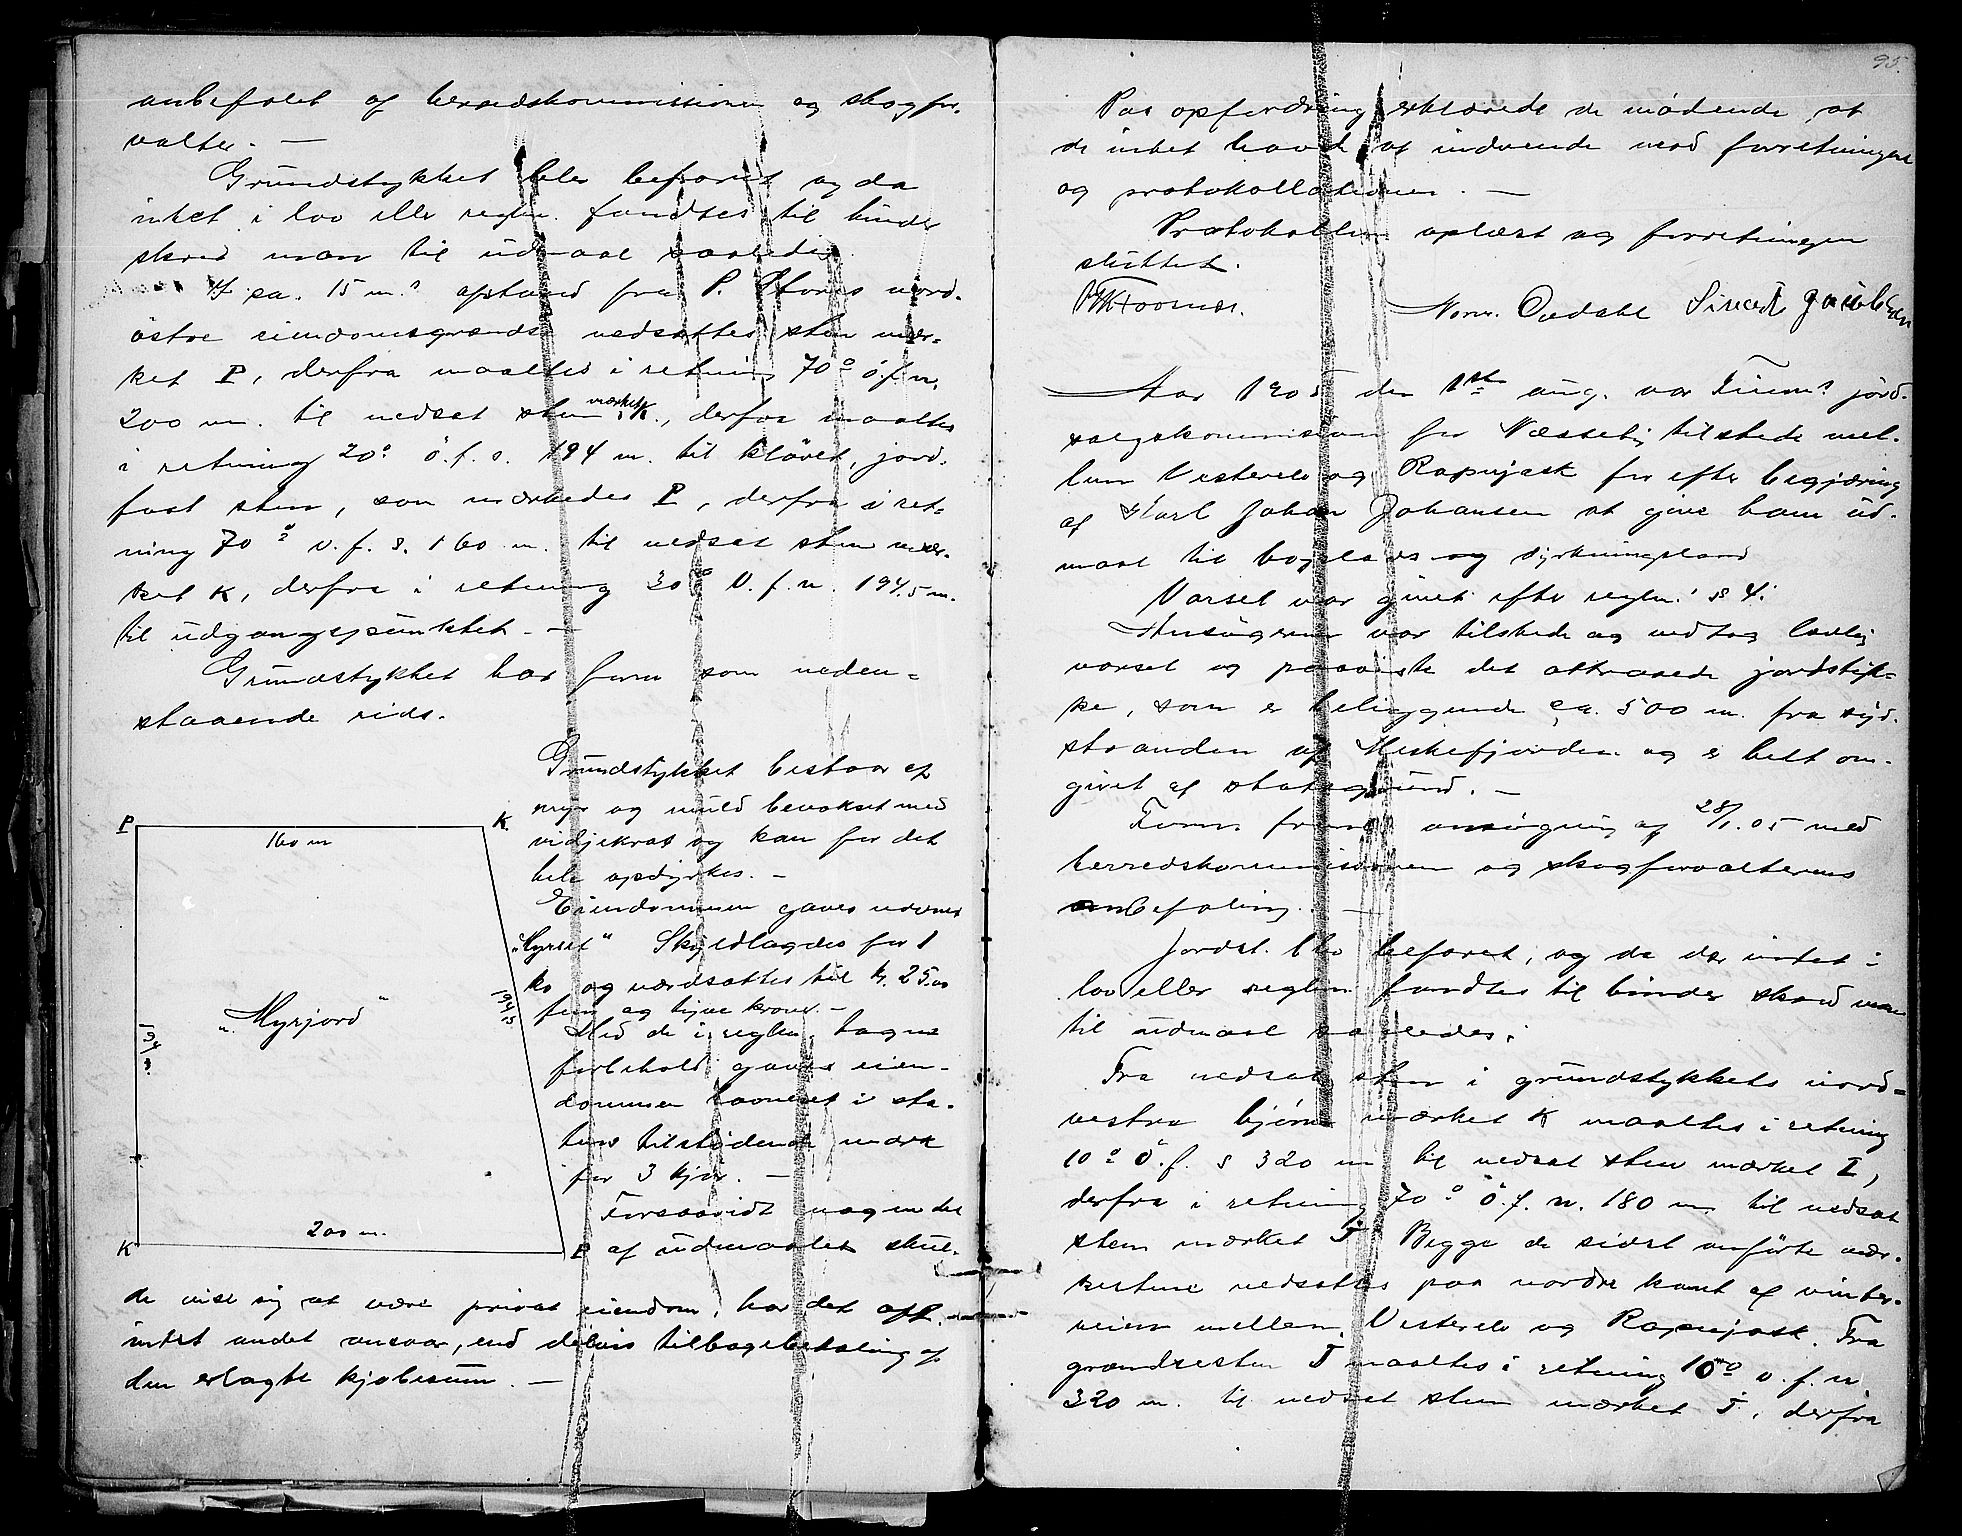 anbefalet af herredskommissionen og skogfor-
valter. —
Grundstykket blev befaret og da
intet i lov eller reglem. fandtes til hinder
skred man til udmaal saaledes:
I ca. 15 m.s afstand fra P. Stores nord-
østre eiendomsgrændse nedsattes sten mær-
ket P, derfra maaltes i retning 70° ö.f.n.
200 m. til nedsat sten mærket K., derfra maaltes
i retning 20° ö.f.s. 194 m. til kløvet, jord-
fast sten, som mærkedes P, derfra i ret-
ning 70° v.f.s. 160 m. til nedsat sten mær-
ket K, derfra i retning 30° v.f.n. 194,5 m.
til udgangspunktet. —
Grundstykket har form som neden-
staaende rids.
Grundstykket bestaar af
myr og muld bevokset med
vidjekrat og kan for det
hele opdyrkes. —
Eiendommen gaves navnet
"Myrset" Skyldlagdes for 1
ko og værdsattes til kr. 25.00
fem og tyve kroner. —
Med de i reglem. tagne
forbehold gaves eien-
dommen havneret i sta-
tens tilstødende mark
for 3 kjør. —
Forsaavidt nogen del
af udmaalet skul-
P
K.
160 m
"Myrjord"
194,5
194
200 m.
K
P
de vise sig at være privat eiendom, har det off.
intet andet ansvar, end delvis tilbagebetaling af
den erlagte kjøbesum. —
95.
Paa opfordring erklærede de mødende, at
de intet havde at indvende mod forretningen
og protokollationen. —
Protokollen oplæst og forretningen
sluttet.
Norm. Oedahl Sivert
Aar 1905 den 1ste aug. var Finm.s jord-
salgskommission for Næsseby tilstede mel-
lem Vesterelv og Rapnjask for efter begjæring
af Karl Johan Johansen at give ham ud-
maal til boplads og dyrkningsland
Varsel var givet efter reglem.s § 4.
Ansøgeren var tilstede og vedtog lovlig
varsel og paaviste det attraaede jordstyk-
ke, som er beliggende ca. 500 m. fra syd-
stranden af Meskefjorden og er helt om-
givet af statsgrund. —
Form. freml. ansøgning af 28/1.05 med
herredskommissionen og skogforvalterens
anbefaling. —
Jordst. blev befaret, og da der intet i
lov eller reglem. fandtes til hinder skred man
til udmaal saaledes:
Fra nedsat sten i grundstykkets nord-
vestre hjørne mærket K maaltes i retning
10° ö.f.s 320 m til nedsat sten mærket I,
derfra i retning 70° ö.f.n. 180 m til nedsat
sten mærket J. Begge de sidst anførte mær-
kestene nedsattes paa nordre kant af vinter-
veien mellem Vesterelv og Rapnjask. Fra
grændsesten J maaltes i retning 10° v.f.n.
320 m. til nedsat sten mærket J, derfra